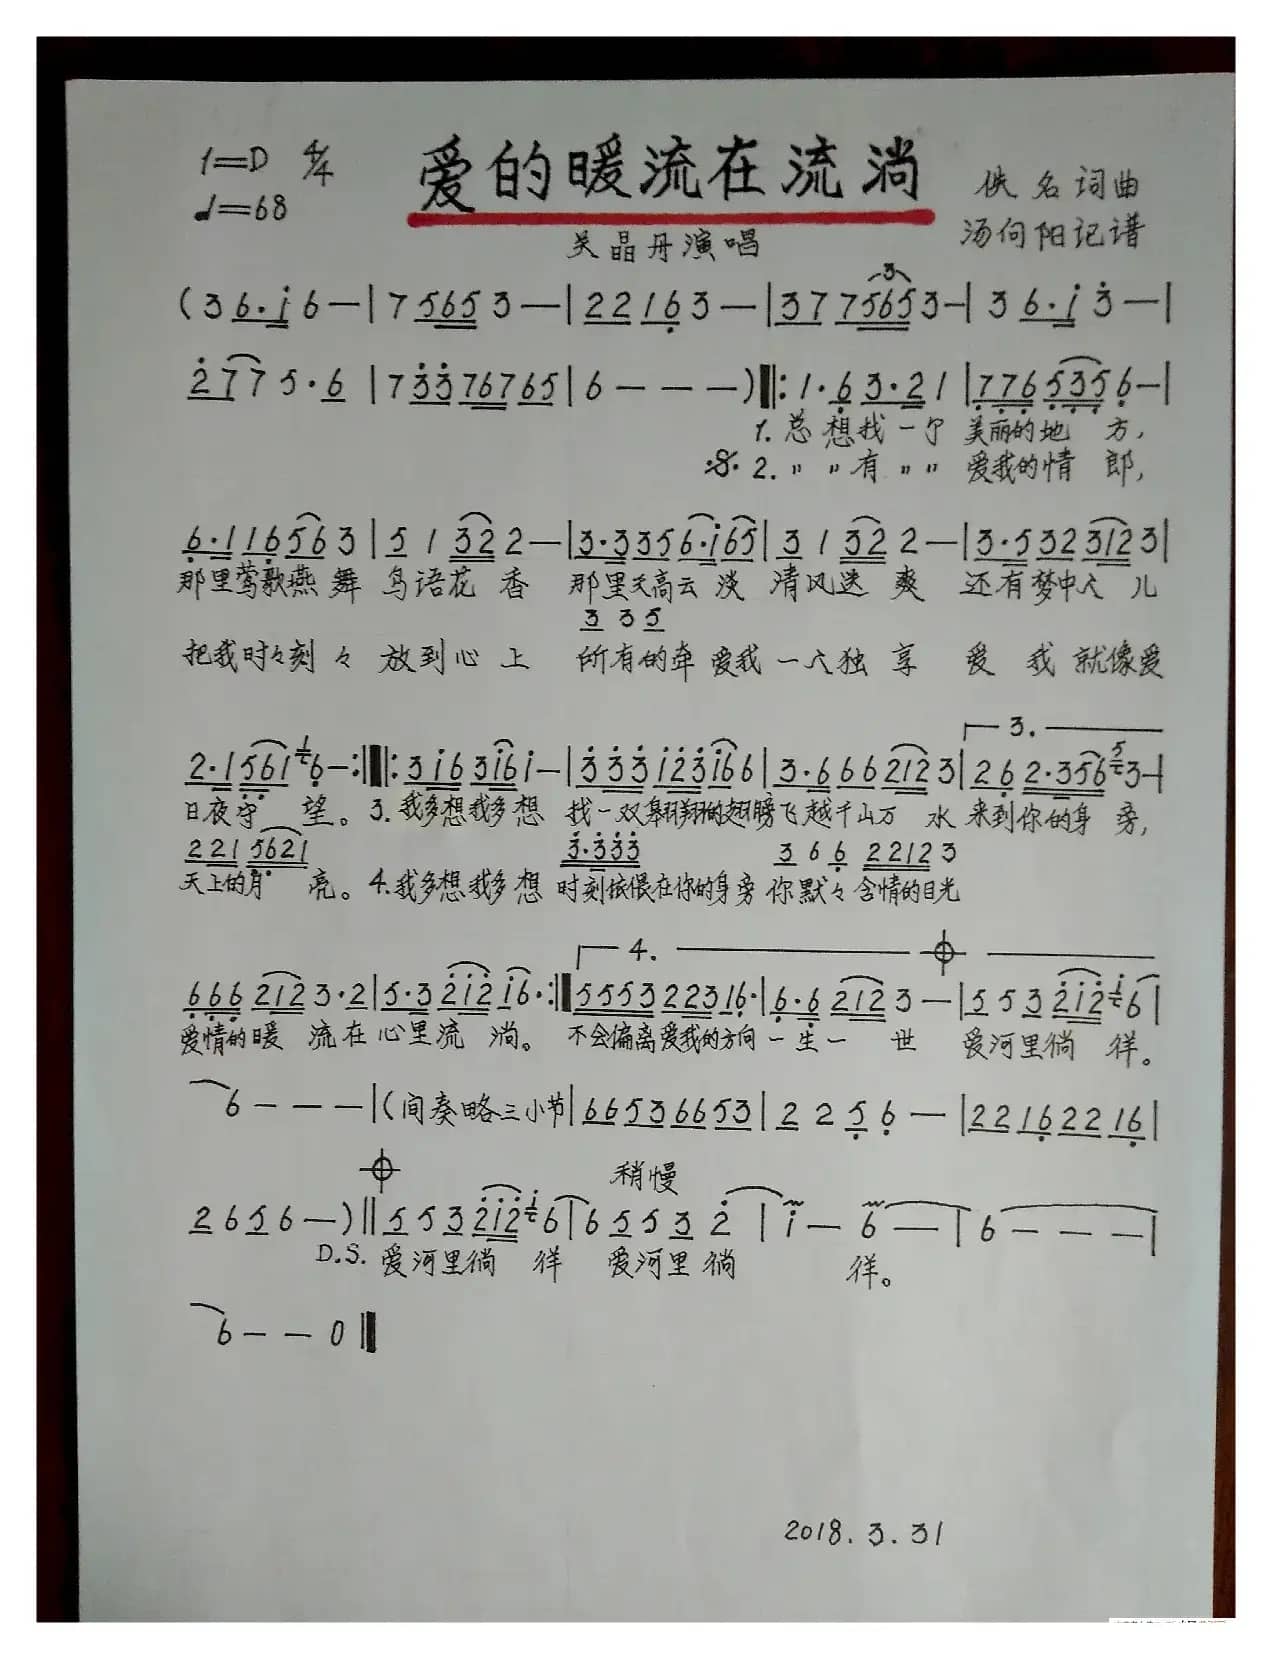 1=D 4/4 爱的暖流在流淌 佚名词曲
♩=68 吴晶丹演唱 汤向阳记谱
(3 6·i 6 —|7 565 3 —|22 16 3 —|377 5653 —|3 6·i 3 —|
277 5·6|733 76765|6 — — —)‖:1·6 3·2 1|776 5356 —|
1. 总想我一个 美丽的地 方,
𝄋 2. 〃 〃 有 〃 〃 爱我的情 郎,
6·1 16 56 3|5 1 32 2 —|3·3 35 6·i 65|3 1 32 2 —|3·5 32 312 3|
那里莺歌燕 舞 鸟语花 香 那里天高云 淡 清风送 爽 还有梦中人 儿
3 3 5
把我时々刻 々 放到心 上 所有的牵 爱我 一人独 享 爱 我 就像爱
3.
2·1 561 6 —:‖:3i6 3i6 i —|333 i23 i66|3·6 66 212 3|26 2·356 3 —|
日夜守 望。 3. 我多想我多 想 找一双翱翔的翅膀 飞越千山万 水 来到你的身 旁,
221 5621 3·333 3 6 6 2212 3
天上的月 亮。 4. 我多想我多 想 时刻依偎在你的身旁 你默々含情的目光
4.
666 212 3·2|5·3 212 i6·:‖5553 223 16·|6·6 212 3 —|5 5 3 212 6|
爱情的暖 流在 心里流 淌。 不会偏离爱我的方向 一生一 世 爱河里徜 徉。
6 — — —|(间奏略三小节|6653 6653|2 2 5 6 —|22 16 22 16|
稍慢
2 6 5 6 —)‖5 5 3 212 6|6 5 5 3 2|i — 6 —|6 — — —|
D.S. 爱河里徜 徉 爱河里徜 徉。
6 — — 0‖
2018.3.31